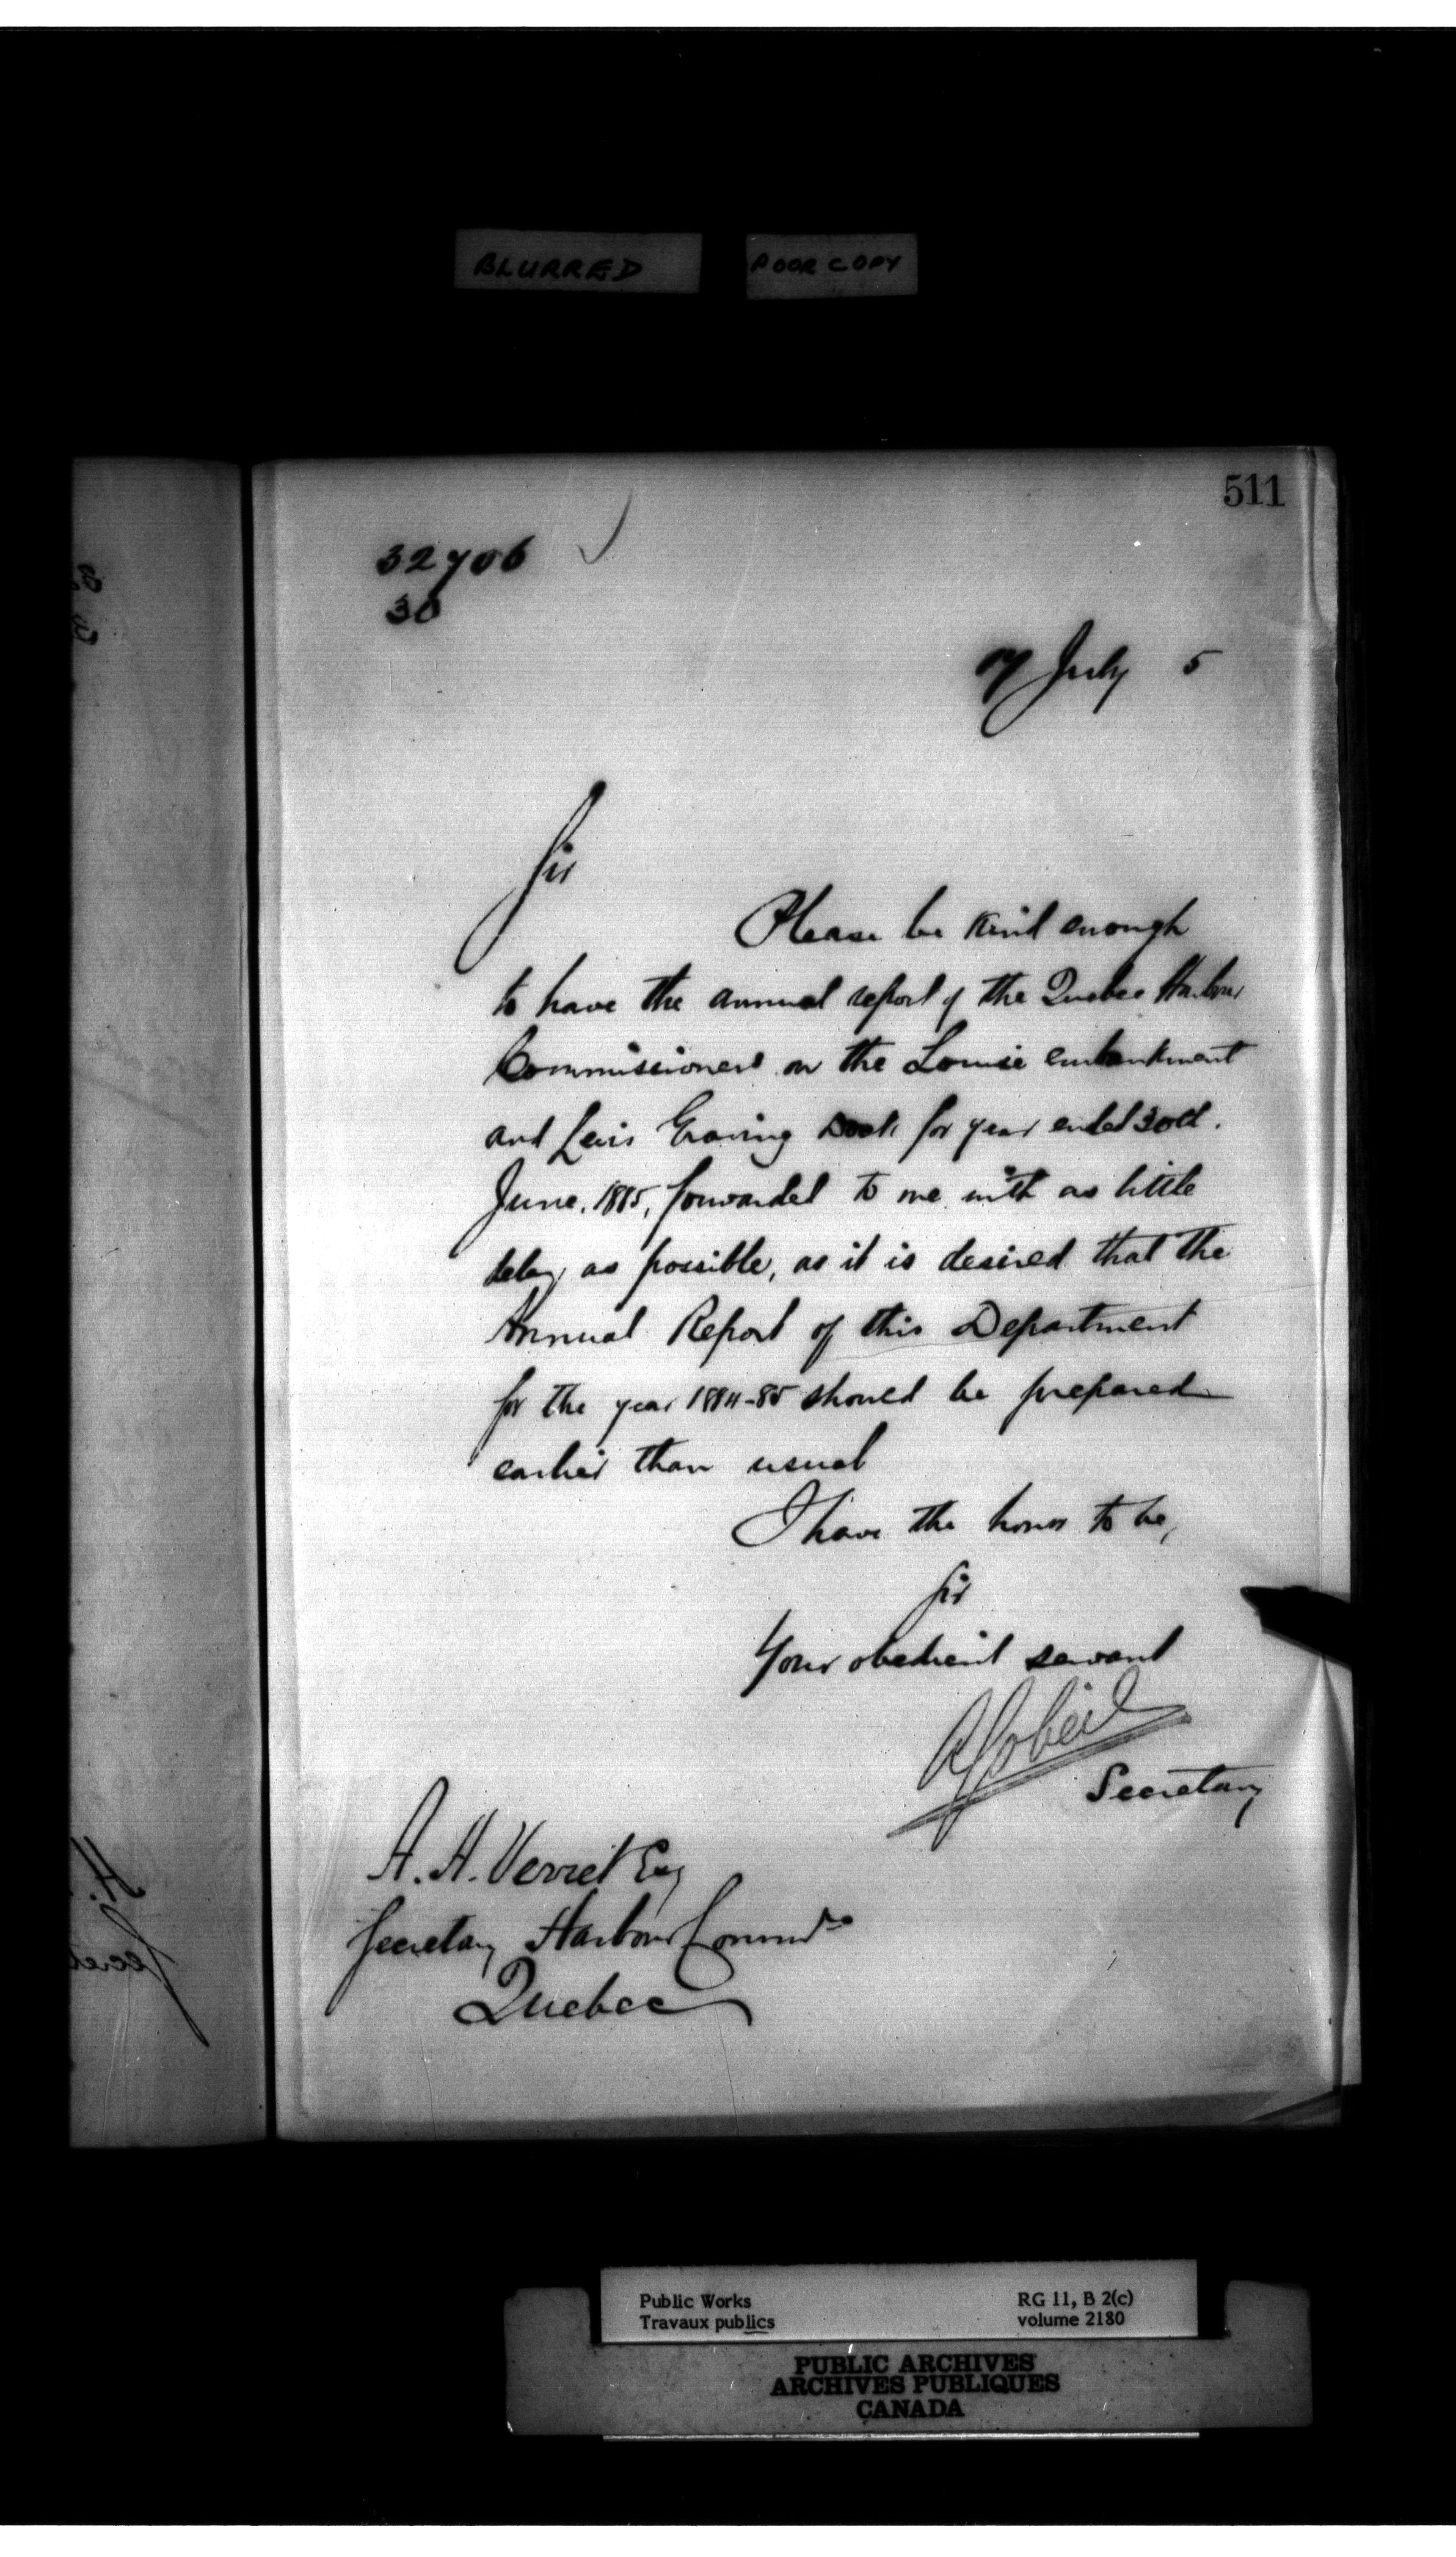 BLURRED
POOR COPY
511
32706
30
17 July 5
Sir
Please be kind enough
to have the annual report of the Quebec Harbour
Commissioners on the Louise embankment
and Levis Graving Dock for year ended 30th.
June, 1885, forwarded to me with as little
delay as possible, as it is desired that the
Annual Report of this Department
for the year 1884-85 should be prepared
earlier than usual
I have the honor to be,
Sir
Your obedient servant
A Gobeil
Secretary
A. H. Verret Esq
Secretary Harbour Commrs
Quebec
Public Works
Travaux publics
RG 11, B 2(c)
volume 2180
PUBLIC ARCHIVES
ARCHIVES PUBLIQUES
CANADA